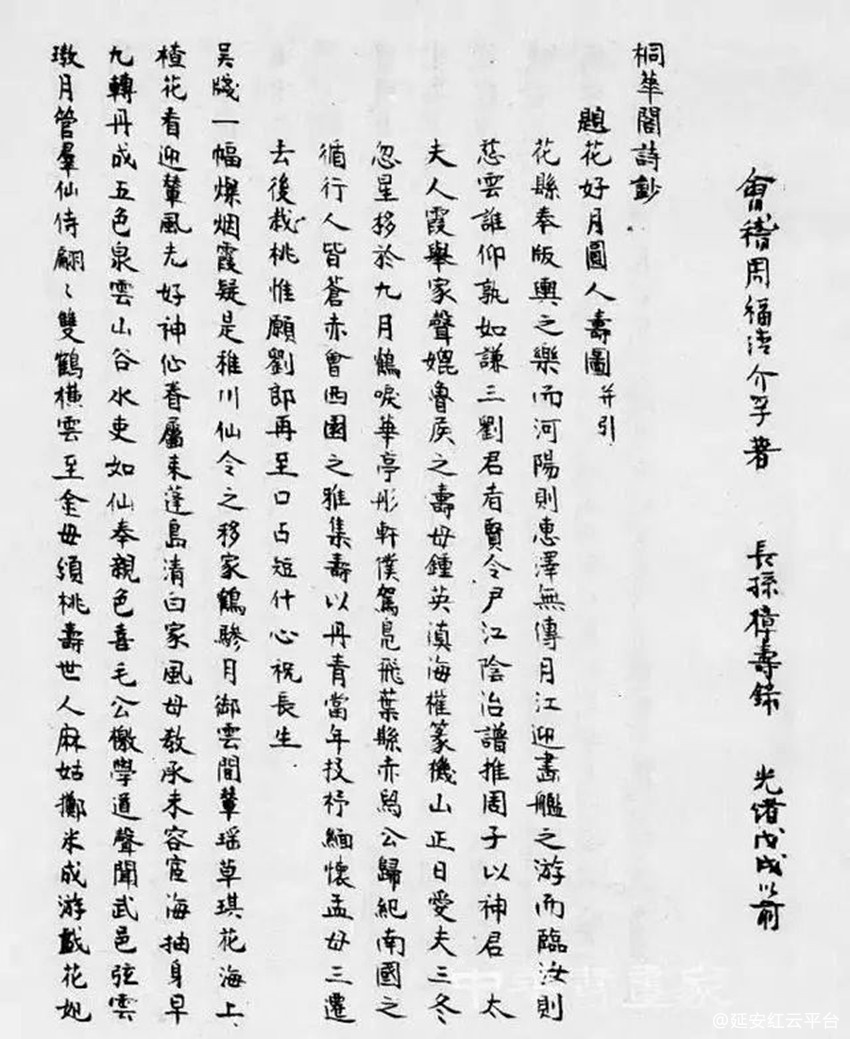 會稽周福清介孚著 長孫樟壽錄 光緒戊戌以前
桐華閣詩鈔
題花好月圓人壽圖并引
花縣奉版輿之樂而河陽則惠澤無傳月江迎畫艦之游而臨汝則
慈雲誰仰孰如謙三劉君者賢令尹江陰治譜推周子以神君 太
夫人霞舉家聲媲魯矦之壽母鍾英滇海權篆機山正日愛夫三冬
忽星移於九月鶴唳華亭彤軒僕駕鳧飛葉縣赤舄公歸紀南國之
循行人皆蒼赤會西園之雅集壽以丹青當年投杼緬懷孟母三遷
去後栽桃惟願劉郎再至口占短什心祝長生
吳牋一幅爍烟霞疑是稚川仙令之移家鶴驂月御雲間輦瑤草琪花海上
楂花看迎輦風光好神仙眷屬來蓬島清白家風母敎承未容宦海抽身早
九轉丹成五色泉雲山谷水吏如仙奉親色喜毛公檄學道聲聞武邑弦雲
璈月管羣仙侍翩〻雙鶴橫雲至金母頒桃壽世人麻姑擲米成游戲花妃
@延安红云平台